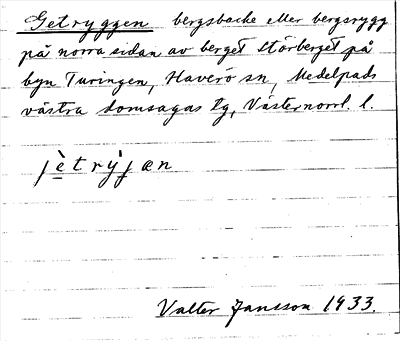 Getryggen bergsbacke eller bergsrygg
på norra sidan av berget Storberget på
byn Turingen, Haverö sn, Medelpads
västra domsagas tg, Västernorrl. l.
jètrỳjæn
Valter Jansson 1933.